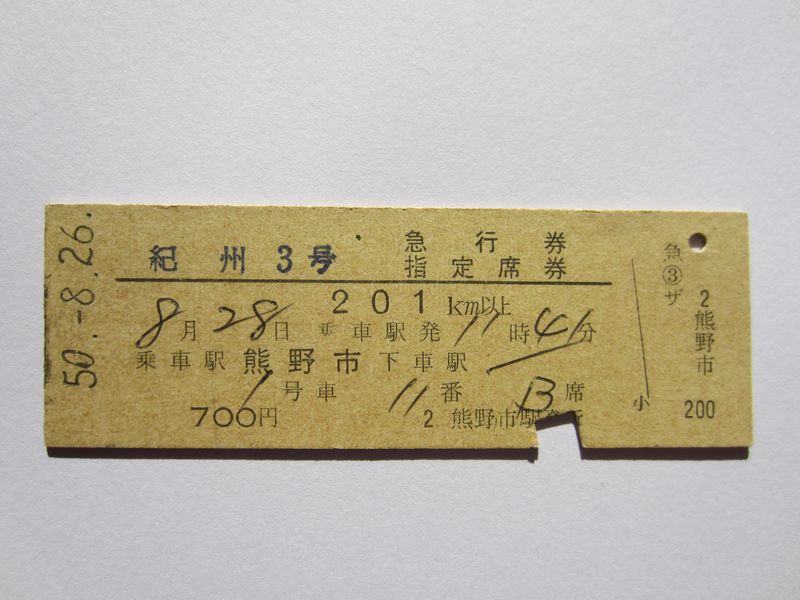 50.-8.26.
紀州3号
急行券
指定席券
201km以上
8月28日 乗車駅発11時41分
乗車駅 熊野市 下車駅
1号車 11番 13席
700円
2 熊野市駅発行
急③ザ
小
2熊野市
200